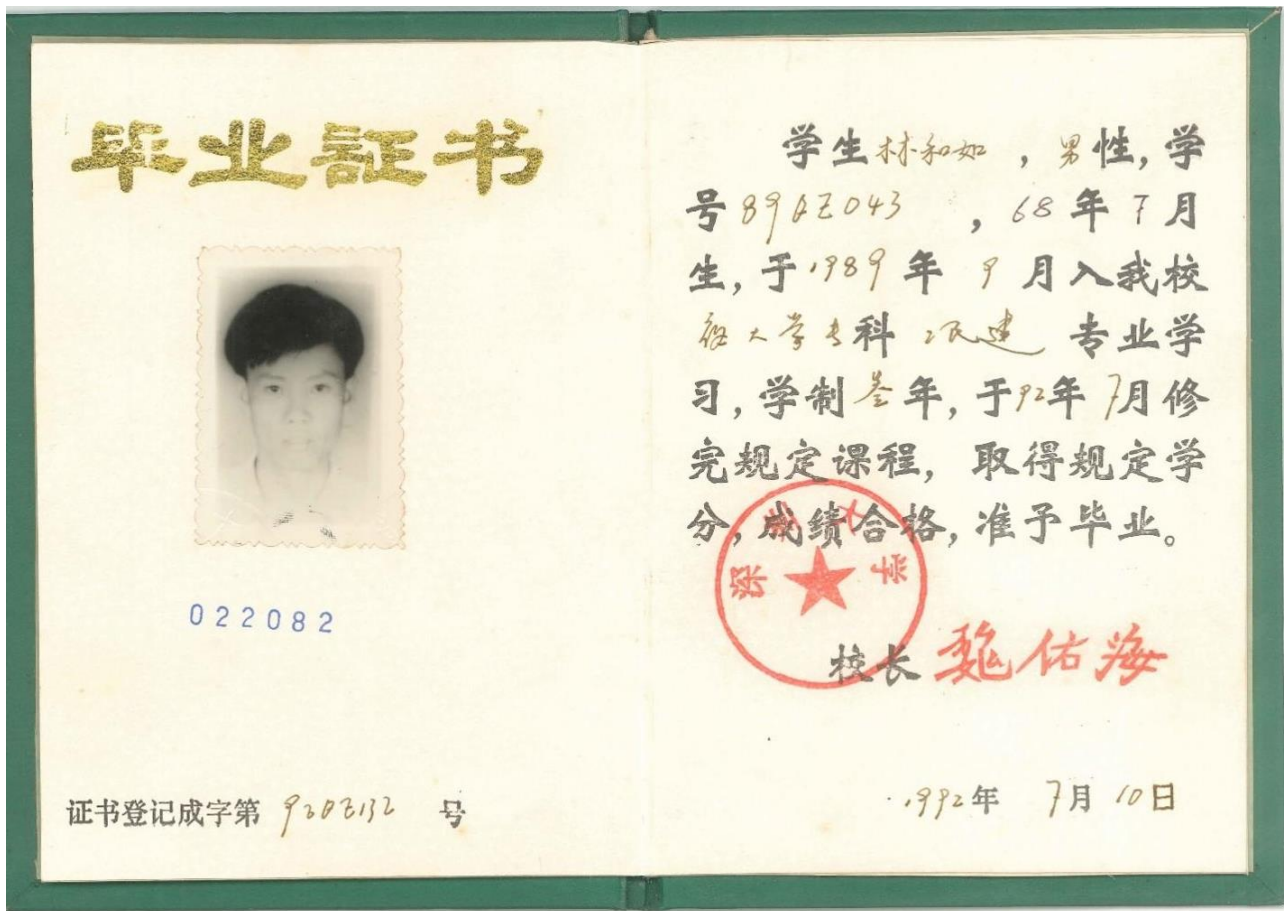 毕业証书
022082
证书登记成字第 920Z132 号
学生林和如，男性，学
号89AZ043，68年7月
生，于1989年9月入我校
大学专科 专业学
习，学制叁年，于92年7月修
完规定课程，取得规定学
分，成绩合格，准予毕业。
深圳大学
校长 魏佑海
1992年7月10日